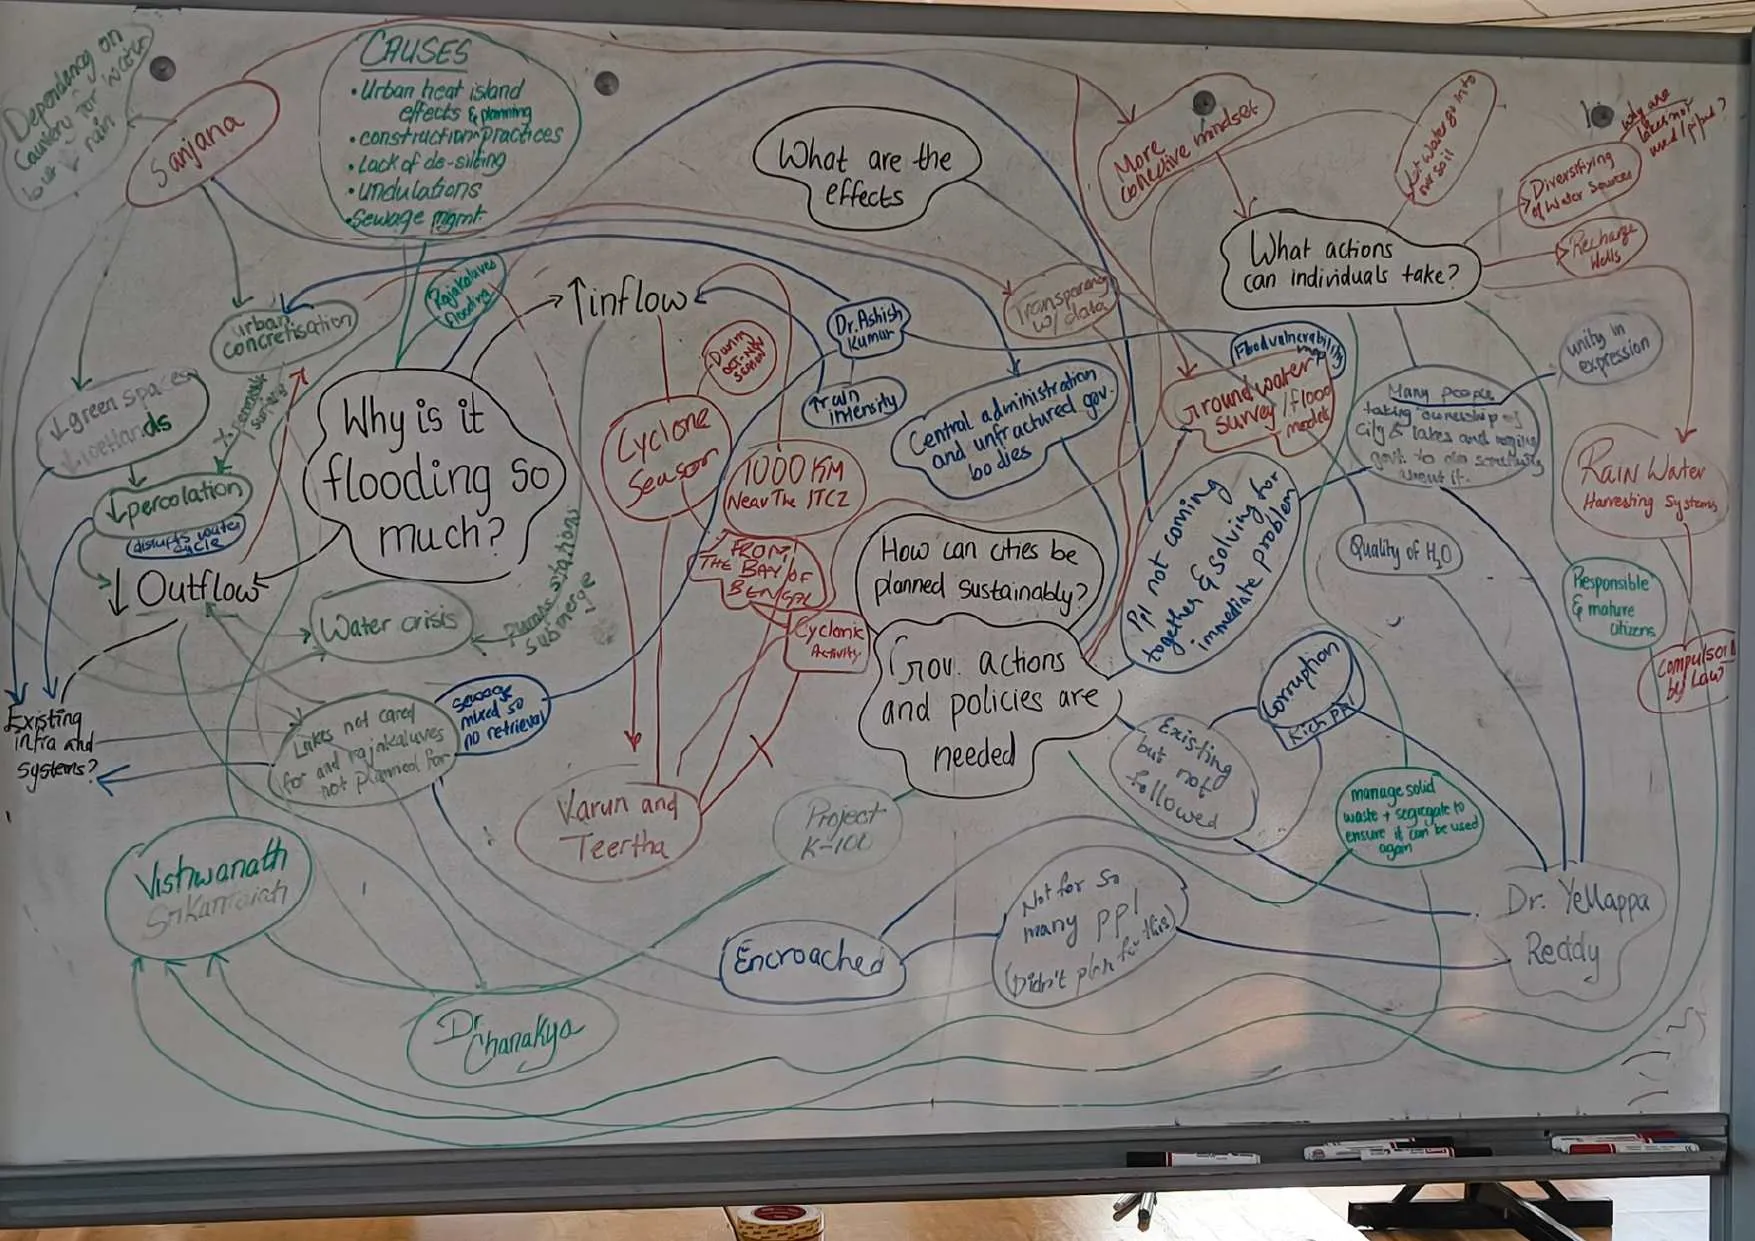 Dependancy on
Cauvery for water
but ↓ rain
Sanjana
CAUSES
• Urban heat island
effects & planning
• construction practices
• Lack of de-silting
• undulations
• Sewage mgmt.
What are the
effects
More
collective mindset
Let water go into
our soil
Why are
lakes not
used / ppud?
Diversifying
of Water Sources
Recharge
Wells
What actions
can individuals take?
Rajakaluves
flooding
↑ inflow
Dr. Ashish
Kumar
Transparency
w/ data
urban
concretisation
During
OCT-NOV
SEASON
↑ rain
intensity
Flood vulnerability
map
Groundwater
survey / flood
models
unity in
expression
Many people
taking ownership of
city & lakes and
govt. to do something
about it.
↓ green spaces
↓ wetlands
surface
Why is it
flooding so
much?
Cyclone
Season
1000 KM
Near The ITCZ
Central administration
and unfractured gov.
bodies
Rain Water
Harvesting Systems
↓ percolation
disrupts water
cycle
FROM
THE BAY OF
BENGAL
How can cities be
planned sustainably?
Ppl not coming
together & solving for
immediate problem
Quality of H2O
↓ Outflow
Water crisis
pumps stations
submerge
Cyclonic
Activity
Gov. actions
and policies are
needed
Responsible
& mature
citizens
Compulsory
by Law
Existing
infra and
systems?
Lakes not cared
for and rajakaluves
not planned for
sewage
mixed so
no retrieval
Corruption
Rich ppl
Existing
but not
followed
Varun and
Teertha
Project
K-100
manage solid
waste + segregate to
ensure it can be used
again
Vishwanath
Srikantaiah
Encroached
Not for so
many ppl
(Didn't plan for this)
Dr. Yellappa
Reddy
Dr.
Chanakya